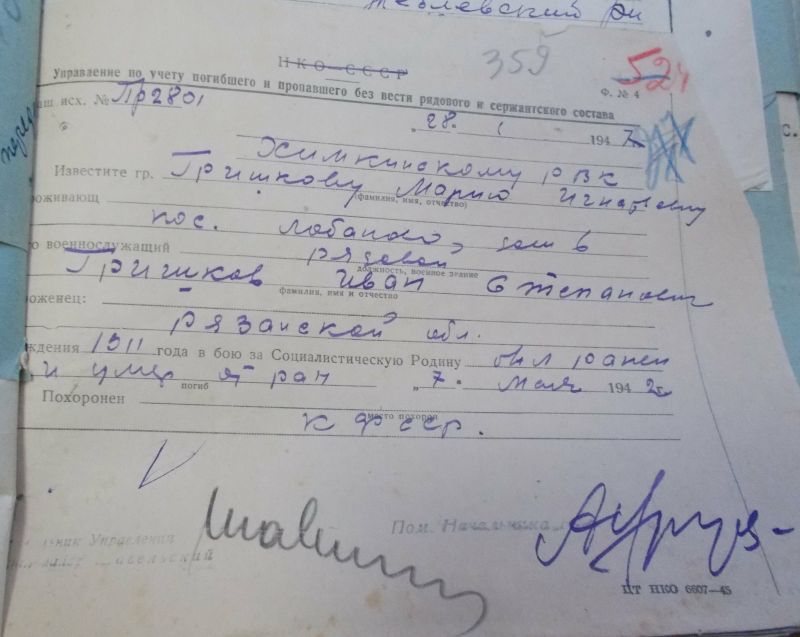 359
524
НКО—СССР
Управление по учету погибшего и пропавшего без вести рядового и сержантского состава
Ф. № 4
исх. № Пр2801
„28. 1 1947
Химкинскому РВК
Известите гр. Гришкову Марию Игнатьевну
(фамилия, имя, отчество)
роживающ
пос. Лобаново, дом 6
о военнослужащий рядовой
должность, военное звание
Гришков Иван Степанович
фамилия, имя и отчество
роженец:
Рязанской обл.
ждения 1911 года в бою за Социалистическую Родину был ранен
и умер от ран „7. мая 1942г
погиб
Похоронен
место похорон
К Ф ССР.
ник Управления
Пом. Начальника
ЦТ НКО 6607—45